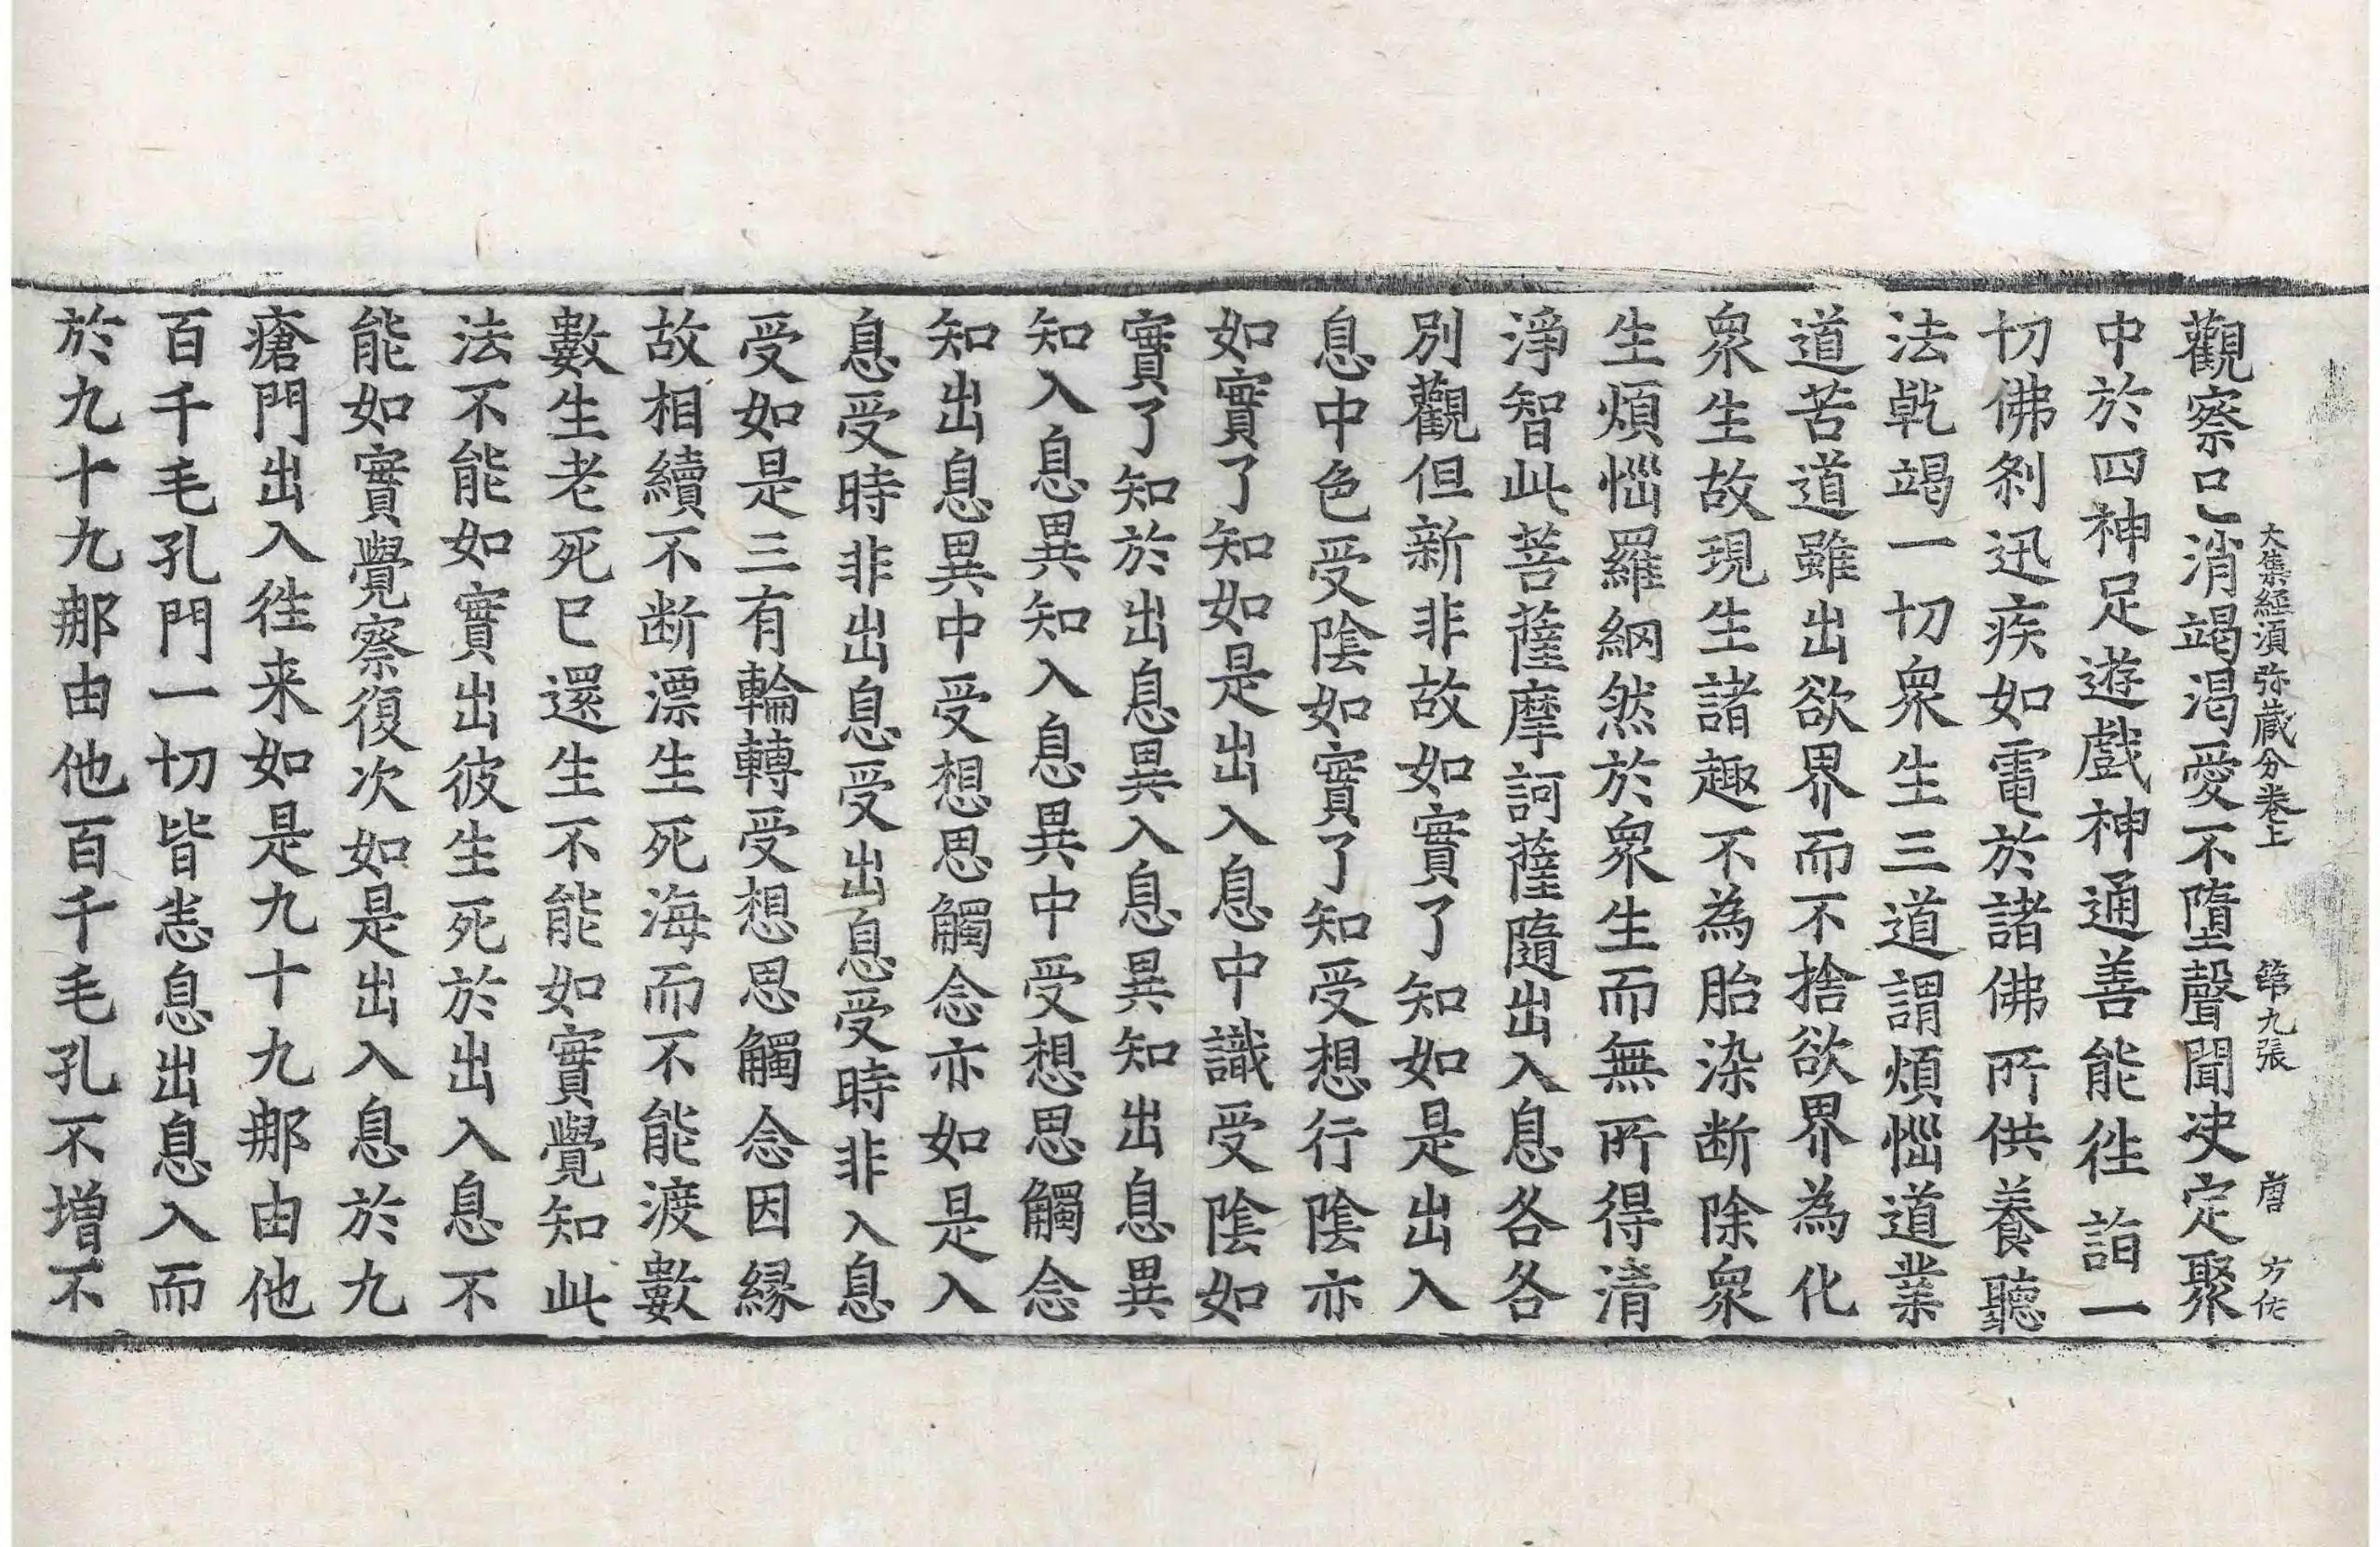 大集經湏弥藏分卷上 第九張 唐 方佐
觀察已消竭渴愛不墮聲聞决定聚
中於四神足遊戲神通善能往詣一
切佛刹迅疾如電於諸佛所供養聽
法乾竭一切衆生三道謂煩惱道業
道苦道雖出欲界而不捨欲界為化
衆生故現生諸趣不為胎染断除衆
生煩惱羅網然於衆生而無所得清
淨智此菩薩摩訶薩隨出入息各各
別觀但新非故如實了知如是出入
息中色受陰如實了知受想行陰亦
如實了知如是出入息中識受陰如
實了知於出息異入息異知出息異
知入息異知入息異中受想思觸念
知出息異中受想思觸念亦如是入
息受時非出息受出息受時非入息
受如是三有輪轉受想思觸念因緣
故相續不断漂生死海而不能渡數
數生老死已還生不能如實覺知此
法不能如實出彼生死於出入息不
能如實覺察復次如是出入息於九
瘡門出入往来如是九十九那由他
百千毛孔門一切皆悉息出息入而
於九十九那由他百千毛孔不增不